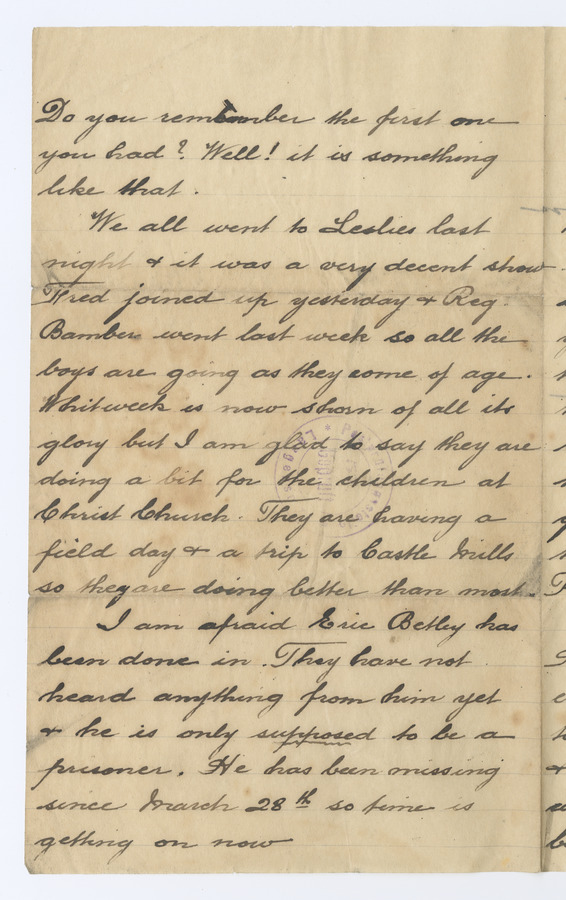 Do you remember the first one
you had? Well! it is something
like that.
We all went to Leslies last
night & it was a very decent show
Fred joined up yesterday & Reg.
Bamber went last week so all the
boys are going as they come of age.
Whitweek is now shorn of all its
glory but I am glad to say they are
doing a bit for the children at
Christ Church. They are having a
field day & a trip to Castle Mills
so they are doing better than most.
I am afraid Eric Betley has
been done in. They have not
heard anything from him yet
& he is only supposed to be a
prisoner. He has been missing
since March 28th so time is
getting on now